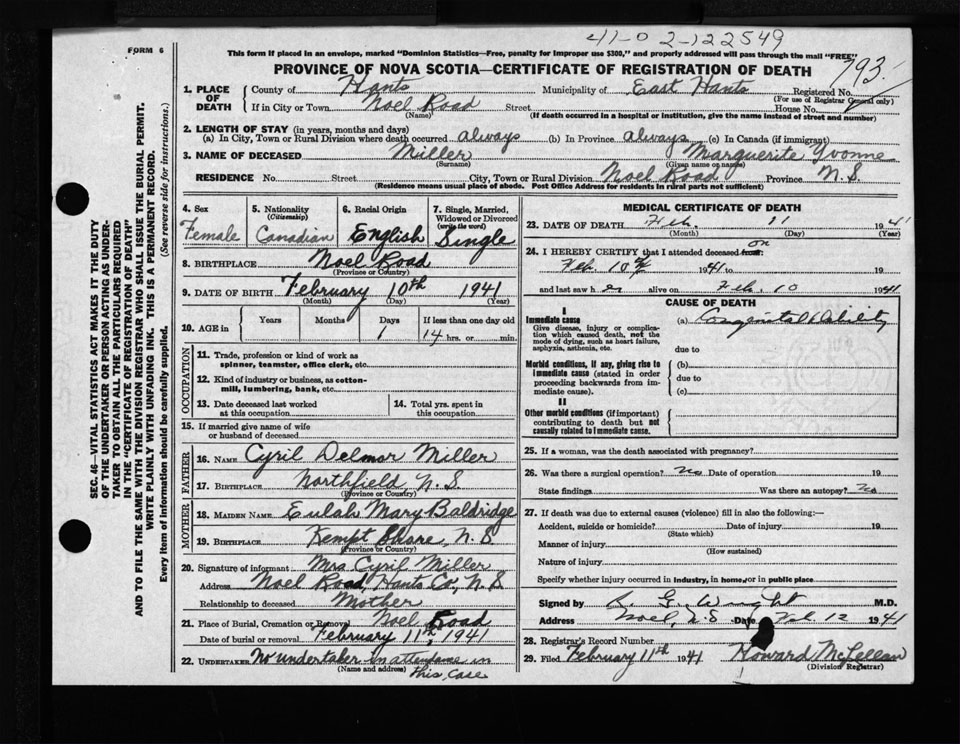 41-0 2-122549
FORM 6
This form if placed in an envelope, marked "Dominion Statistics—Free, penalty for improper use $300," and properly addressed will pass through the mail "FREE"
793
PROVINCE OF NOVA SCOTIA—CERTIFICATE OF REGISTRATION OF DEATH
SEC. 46—VITAL STATISTICS ACT MAKES IT THE DUTY
OF THE UNDERTAKER OR PERSON ACTING AS UNDER-
TAKER TO OBTAIN ALL THE PARTICULARS REQUIRED
IN THE "CERTIFICATE OF REGISTRATION OF DEATH"
AND TO FILE THE SAME WITH THE DIVISION REGISTRAR WHO SHALL ISSUE THE BURIAL PERMIT.
WRITE PLAINLY WITH UNFADING INK. THIS IS A PERMANENT RECORD.
Every item of information should be carefully supplied. (See reverse side for instructions.)
1. PLACE OF DEATH County of Hants Municipality of East Hants Registered No.
(For use of Registrar General only)
If in City or Town Noel Road Street House No.
(Name) (If death occurred in a hospital or institution, give the name instead of street and number)
2. LENGTH OF STAY (in years, months and days)
(a) In City, Town or Rural Division where death occurred always (b) In Province always (c) In Canada (if immigrant)
3. NAME OF DECEASED Miller Marguerite Yvonne
(Surname) (Given name or names)
RESIDENCE No. Street City, Town or Rural Division Noel Road Province N.S.
(Residence means usual place of abode. Post Office Address for residents in rural parts not sufficient)
4. Sex Female
5. Nationality (Citizenship) Canadian
6. Racial Origin English
7. Single, Married, Widowed or Divorced (write the word) Single
8. BIRTHPLACE Noel Road
(Province or Country)
9. DATE OF BIRTH February 10th 1941
(Month) (Day) (Year)
10. AGE in Years Months Days 1 If less than one day old 14 hrs. or min.
OCCUPATION
11. Trade, profession or kind of work as
spinner, teamster, office clerk, etc.
12. Kind of industry or business, as cotton-
mill, lumbering, bank, etc.
13. Date deceased last worked
at this occupation
14. Total yrs. spent in
this occupation
15. If married give name of wife
or husband of deceased
FATHER
16. NAME Cyril Delmar Miller
17. BIRTHPLACE Northfield, N.S.
(Province or Country)
MOTHER
18. MAIDEN NAME Eulah Mary Baldridge
19. BIRTHPLACE Kempt Shore, N.S.
(Province or Country)
20. Signature of informant Mrs. Cyril Miller
Address Noel Road, Hants Co., N.S.
Relationship to deceased Mother
21. Place of Burial, Cremation or Removal Noel Road
Date of burial or removal February 11th, 1941
22. UNDERTAKER No undertaker in attendance in
(Name and address)
this case
MEDICAL CERTIFICATE OF DEATH
23. DATE OF DEATH Feb. 11 1941
(Month) (Day) (Year)
on
24. I HEREBY CERTIFY that I attended deceased from:
Feb 10 1941 to 19
and last saw her alive on Feb. 10 1941
CAUSE OF DEATH
I
Immediate cause (a) Congenital Debility
Give disease, injury or complica-
tion which caused death, not the
mode of dying, such as heart failure,
asphyxia, asthenia, etc.
due to
Morbid conditions, if any, giving rise to
immediate cause (stated in order
proceeding backwards from im-
mediate cause).
(b)
due to
(c)
II
Other morbid conditions (if important)
contributing to death but not
causally related to immediate cause.
25. If a woman, was the death associated with pregnancy?
26. Was there a surgical operation? no Date of operation 19
State findings Was there an autopsy? No
27. If death was due to external causes (violence) fill in also the following:—
Accident, suicide or homicide? Date of injury 19
(State which)
Manner of injury
(How sustained)
Nature of injury
Specify whether injury occurred in industry, in home, or in public place
Signed by G. Wright M.D.
Address Noel, N.S. Date Feb. 12 1941
28. Registrar's Record Number
29. Filed February 11th 1941 Howard McLellan
(Division Registrar)